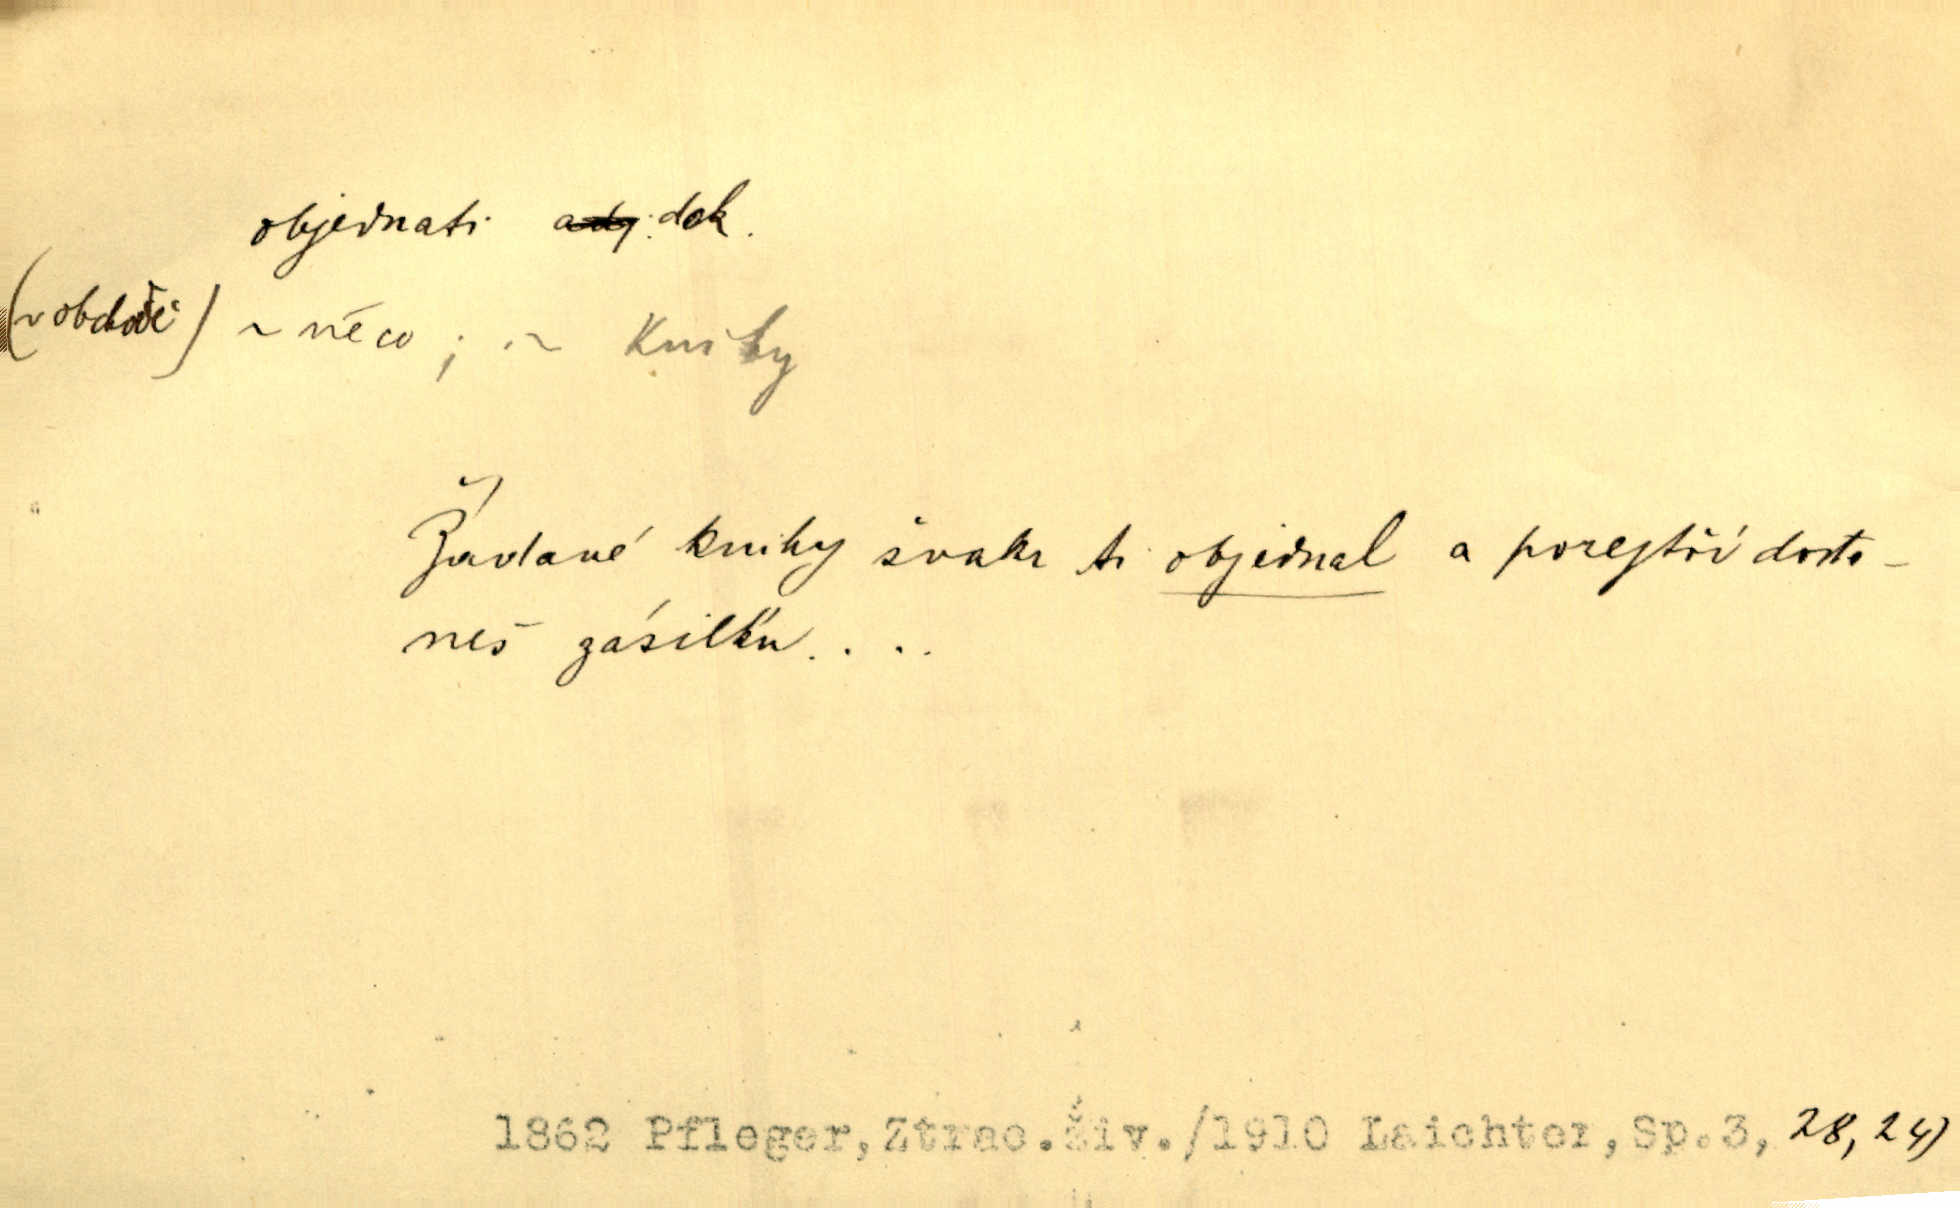 objednati adj. dok.
(v obchodě) ~ něco ; ~ knihy
Žádané knihy švakr ti objednal a pozejtří dosta-
neš zásilku....
1862 Pfleger,Ztrac.živ./1910 Laichter,Sp.3, 28, 24)